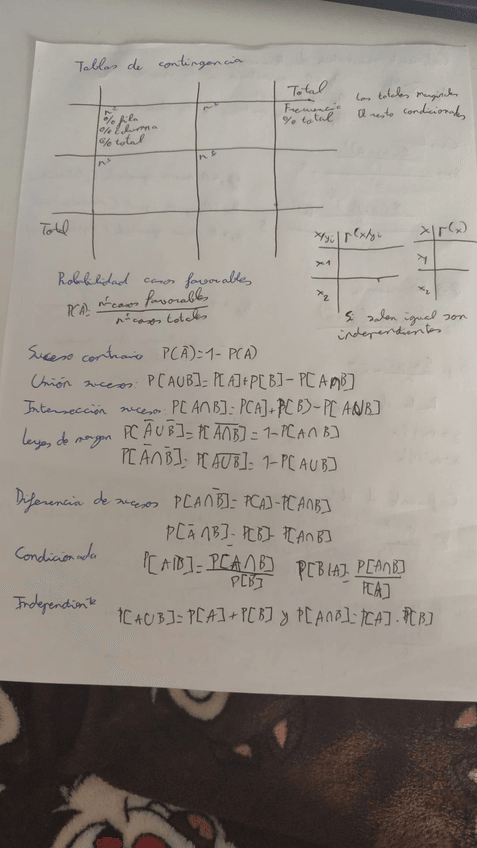 Tablas de contingencia
Total
nº nº Frecuencia Los totales marginales
% fila % total El resto condicionales
% columna
% total
nº nº
Total
x/yi r(x/yi x r(x)
x1 x1
x2 x2
Si salen igual son
independientes
Probabilidad casos favorables
P(A)= nº casos favorables
nº casos totales
Suceso contrario P(Ā)=1-P(A)
Unión sucesos: P[A∪B]=P[A]+P[B]-P[A∩B]
Intersección sucesos P[A∩B]=P[A]+P[B]-P[A∪B]
Leyes de morgan P[Ā∪B̄]=P[A∩B]̅=1-P[A∩B]
P[Ā∩B̄]=P[A∪B]̅=1-P[A∪B]
Diferencia de sucesos P[A∩B̄]=P[A]-P[A∩B]
P[Ā∩B]=P[B]-P[A∩B]
Condicionada P[A|B]=P[A∩B]/P[B] P[B|A]=P[A∩B]/P[A]
Independiente P[A∪B]=P[A]+P[B] y P[A∩B]=P[A].P[B]